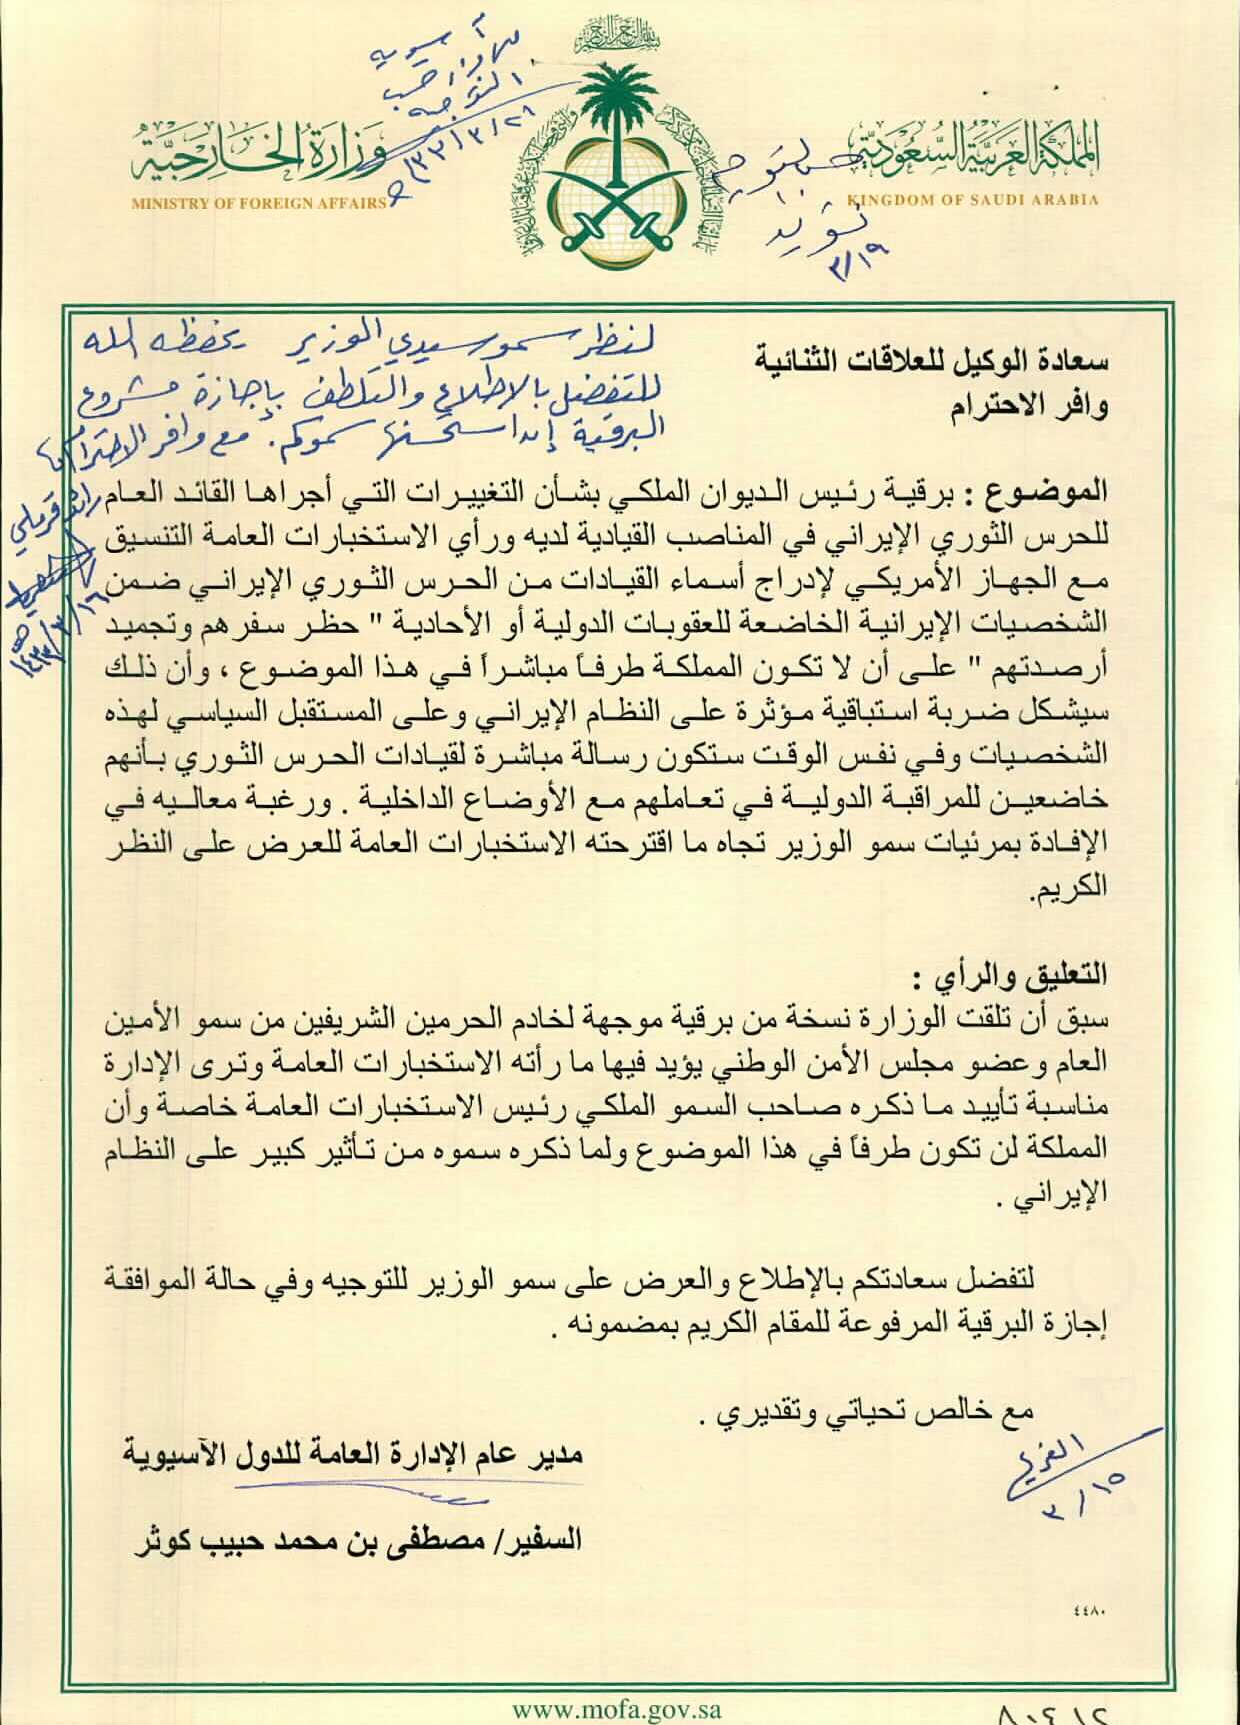 بسم الله الرحمن الرحيم
المملكة العربية السعودية
KINGDOM OF SAUDI ARABIA
وزارة الخارجية
MINISTRY OF FOREIGN AFFAIRS
آسيوية
حسب
التوجيه
٣/١٩
لنظر سمو سيدي الوزير يحفظه الله
للتفضل بالاطلاع والتلطف بإجازة مشروع
البرقية إذا استحسنها سموكم. مع وافر الاحترام
سعادة الوكيل للعلاقات الثنائية
وافر الاحترام
الموضوع : برقية رئيس الديوان الملكي بشأن التغييرات التي أجراها القائد العام
للحرس الثوري الإيراني في المناصب القيادية لديه ورأي الاستخبارات العامة التنسيق
مع الجهاز الأمريكي لإدراج أسماء القيادات من الحرس الثوري الإيراني ضمن
الشخصيات الإيرانية الخاضعة للعقوبات الدولية أو الأحادية " حظر سفرهم وتجميد
أرصدتهم " على أن لا تكون المملكة طرفاً مباشراً في هذا الموضوع ، وأن ذلك
سيشكل ضربة استباقية مؤثرة على النظام الإيراني وعلى المستقبل السياسي لهذه
الشخصيات وفي نفس الوقت ستكون رسالة مباشرة لقيادات الحرس الثوري بأنهم
خاضعين للمراقبة الدولية في تعاملهم مع الأوضاع الداخلية . ورغبة معاليه في
الإفادة بمرئيات سمو الوزير تجاه ما اقترحته الاستخبارات العامة للعرض على النظر
الكريم.
التعليق والرأي :
سبق أن تلقت الوزارة نسخة من برقية موجهة لخادم الحرمين الشريفين من سمو الأمين
العام وعضو مجلس الأمن الوطني يؤيد فيها ما رأته الاستخبارات العامة وترى الإدارة
مناسبة تأييد ما ذكره صاحب السمو الملكي رئيس الاستخبارات العامة خاصة وأن
المملكة لن تكون طرفاً في هذا الموضوع ولما ذكره سموه من تأثير كبير على النظام
الإيراني .
لتفضل سعادتكم بالإطلاع والعرض على سمو الوزير للتوجيه وفي حالة الموافقة
إجازة البرقية المرفوعة للمقام الكريم بمضمونه .
مع خالص تحياتي وتقديري .
مدير عام الإدارة العامة للدول الآسيوية
السفير/ مصطفى بن محمد حبيب كوثر
٣/١٥
٤٤٨٠
www.mofa.gov.sa